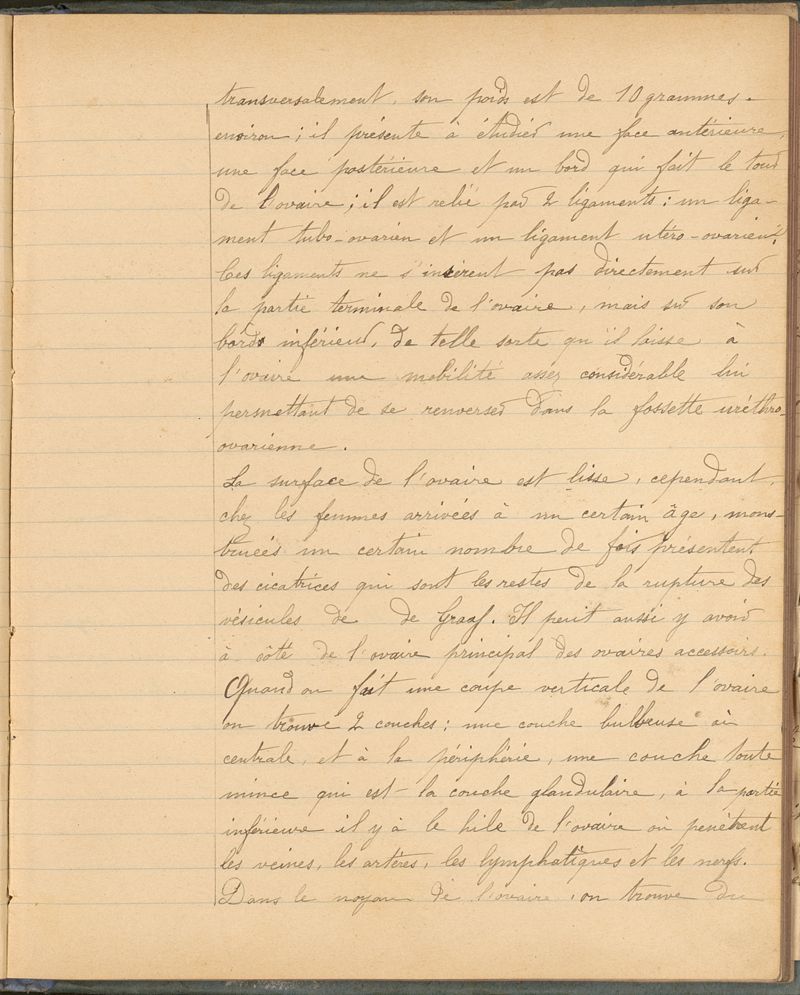 transversalement, son poids est de 10 grammes.
environ ; il présente à étudier une face antérieure,
une face postérieure et un bord qui fait le tour
de l'ovaire ; il est relié par 2 ligaments : un liga-
ment tubo-ovarien et un ligament utéro-ovarien.
Ces ligaments ne s'insèrent pas directement sur
la partie terminale de l'ovaire, mais sur son
bords inférieur, de telle sorte qu'il laisse à
l'ovaire une mobilité assez considérable lui
permettant de se renverser dans la fossette uréthro-
ovarienne.
La surface de l'ovaire est lisse, cependant,
chez les femmes arrivées à un certain âge, mens-
truées un certain nombre de fois présentent
des cicatrices qui sont les restes de la rupture des
vésicules de de Graaf. Il peut aussi y avoir
à côté de l'ovaire principal des ovaires accessoirs.
Quand on fait une coupe verticale de l'ovaire
on trouve 2 couches ; une couche bulbeuse où
centrale, et à la périphérie, une couche toute
mince qui est la couche glandulaire, à la partie
inférieure il y à le hile de l'ovaire où penètrent
les veines, les artères, les lymphatiques et les nerfs.
Dans le noyau de l'ovaire, on trouve du